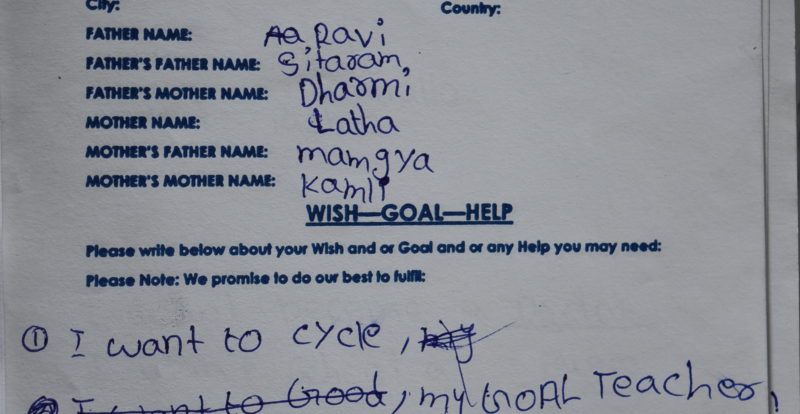 City: Country:
FATHER NAME: Aa, Ravi
FATHER'S FATHER NAME: Sitaram,
FATHER'S MOTHER NAME: Dharmi,
MOTHER NAME: Latha
MOTHER'S FATHER NAME: mamgya
MOTHER'S MOTHER NAME: Kamli
WISH—GOAL—HELP
Please write below about your Wish and or Goal and or any Help you may need:
Please Note: We promise to do our best to fulfil:
① I want to cycle, my
② I want to Good, my GOAL Teacher,